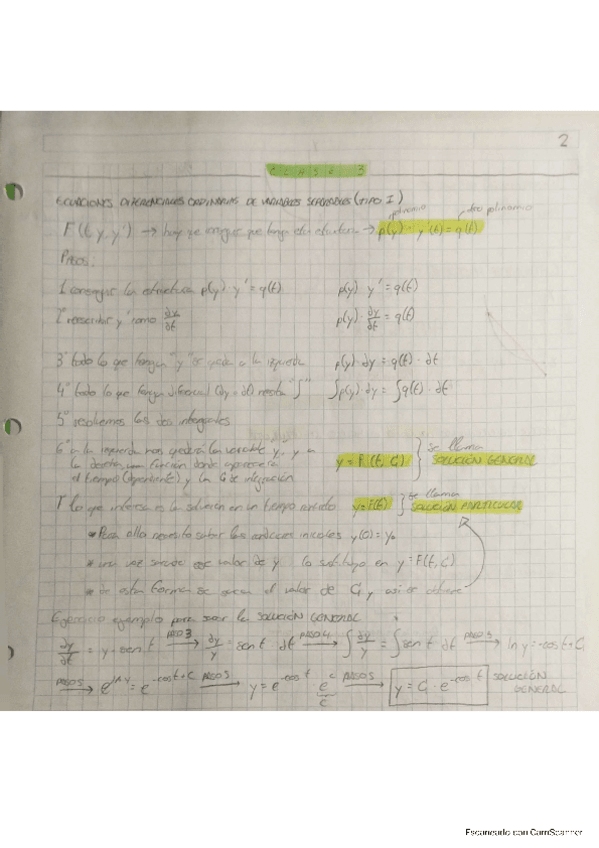 2
CLASE 3
ECUACIONES DIFERENCIALES ORDINARIAS DE VARIABLES SEPARABLES (TIPO I)
polinomio otro polinomio
F(t, y, y') → hay que conseguir que tenga esta estructura → p(y) · y'(t) = q(t)
PASOS:
1º conseguir la estructura p(y) · y' = q(t) p(y) · y' = q(t)
reescribir y' como dy/dt p(y) · dy/dt = q(t)
3º todo lo que tenga "y" se queda a la izquierda p(y) · dy = q(t) · dt
4º todo lo que tenga diferencial (dy, dt) "∫" ∫p(y) · dy = ∫q(t) · dt
5º resolvemos las dos integrales
6º a la izquierda nos quedará la variable y, y a
la derecha una función donde aparecerá y = F(t, C) } se llama SOLUCIÓN GENERAL
el tiempo (dependiente) y la C de integración
lo que interesa es la solución en un tiempo y = F(t) } se llama SOLUCIÓN PARTICULAR
• Para ello necesito saber las condiciones iniciales y(0) = y₀
• una vez valor de y lo sustituyo en y = F(t, C)
• de esta forma se saca el valor de C, y así se obtiene
Ejercicio ejemplo para sacar la SOLUCIÓN GENERAL
dy/dt = y · sen t PASO 3 → dy/y = sen t · dt PASO 4 → ∫ dy/y = ∫ sen t dt PASO 5 → ln y = -cos t + C
PASO 5 → e^ln y = e^-cos t + C PASO 5 → y = e^-cos t · e^c PASO 5 → y = C · e^-cos t SOLUCIÓN GENERAL
C
Escaneado con CamScanner